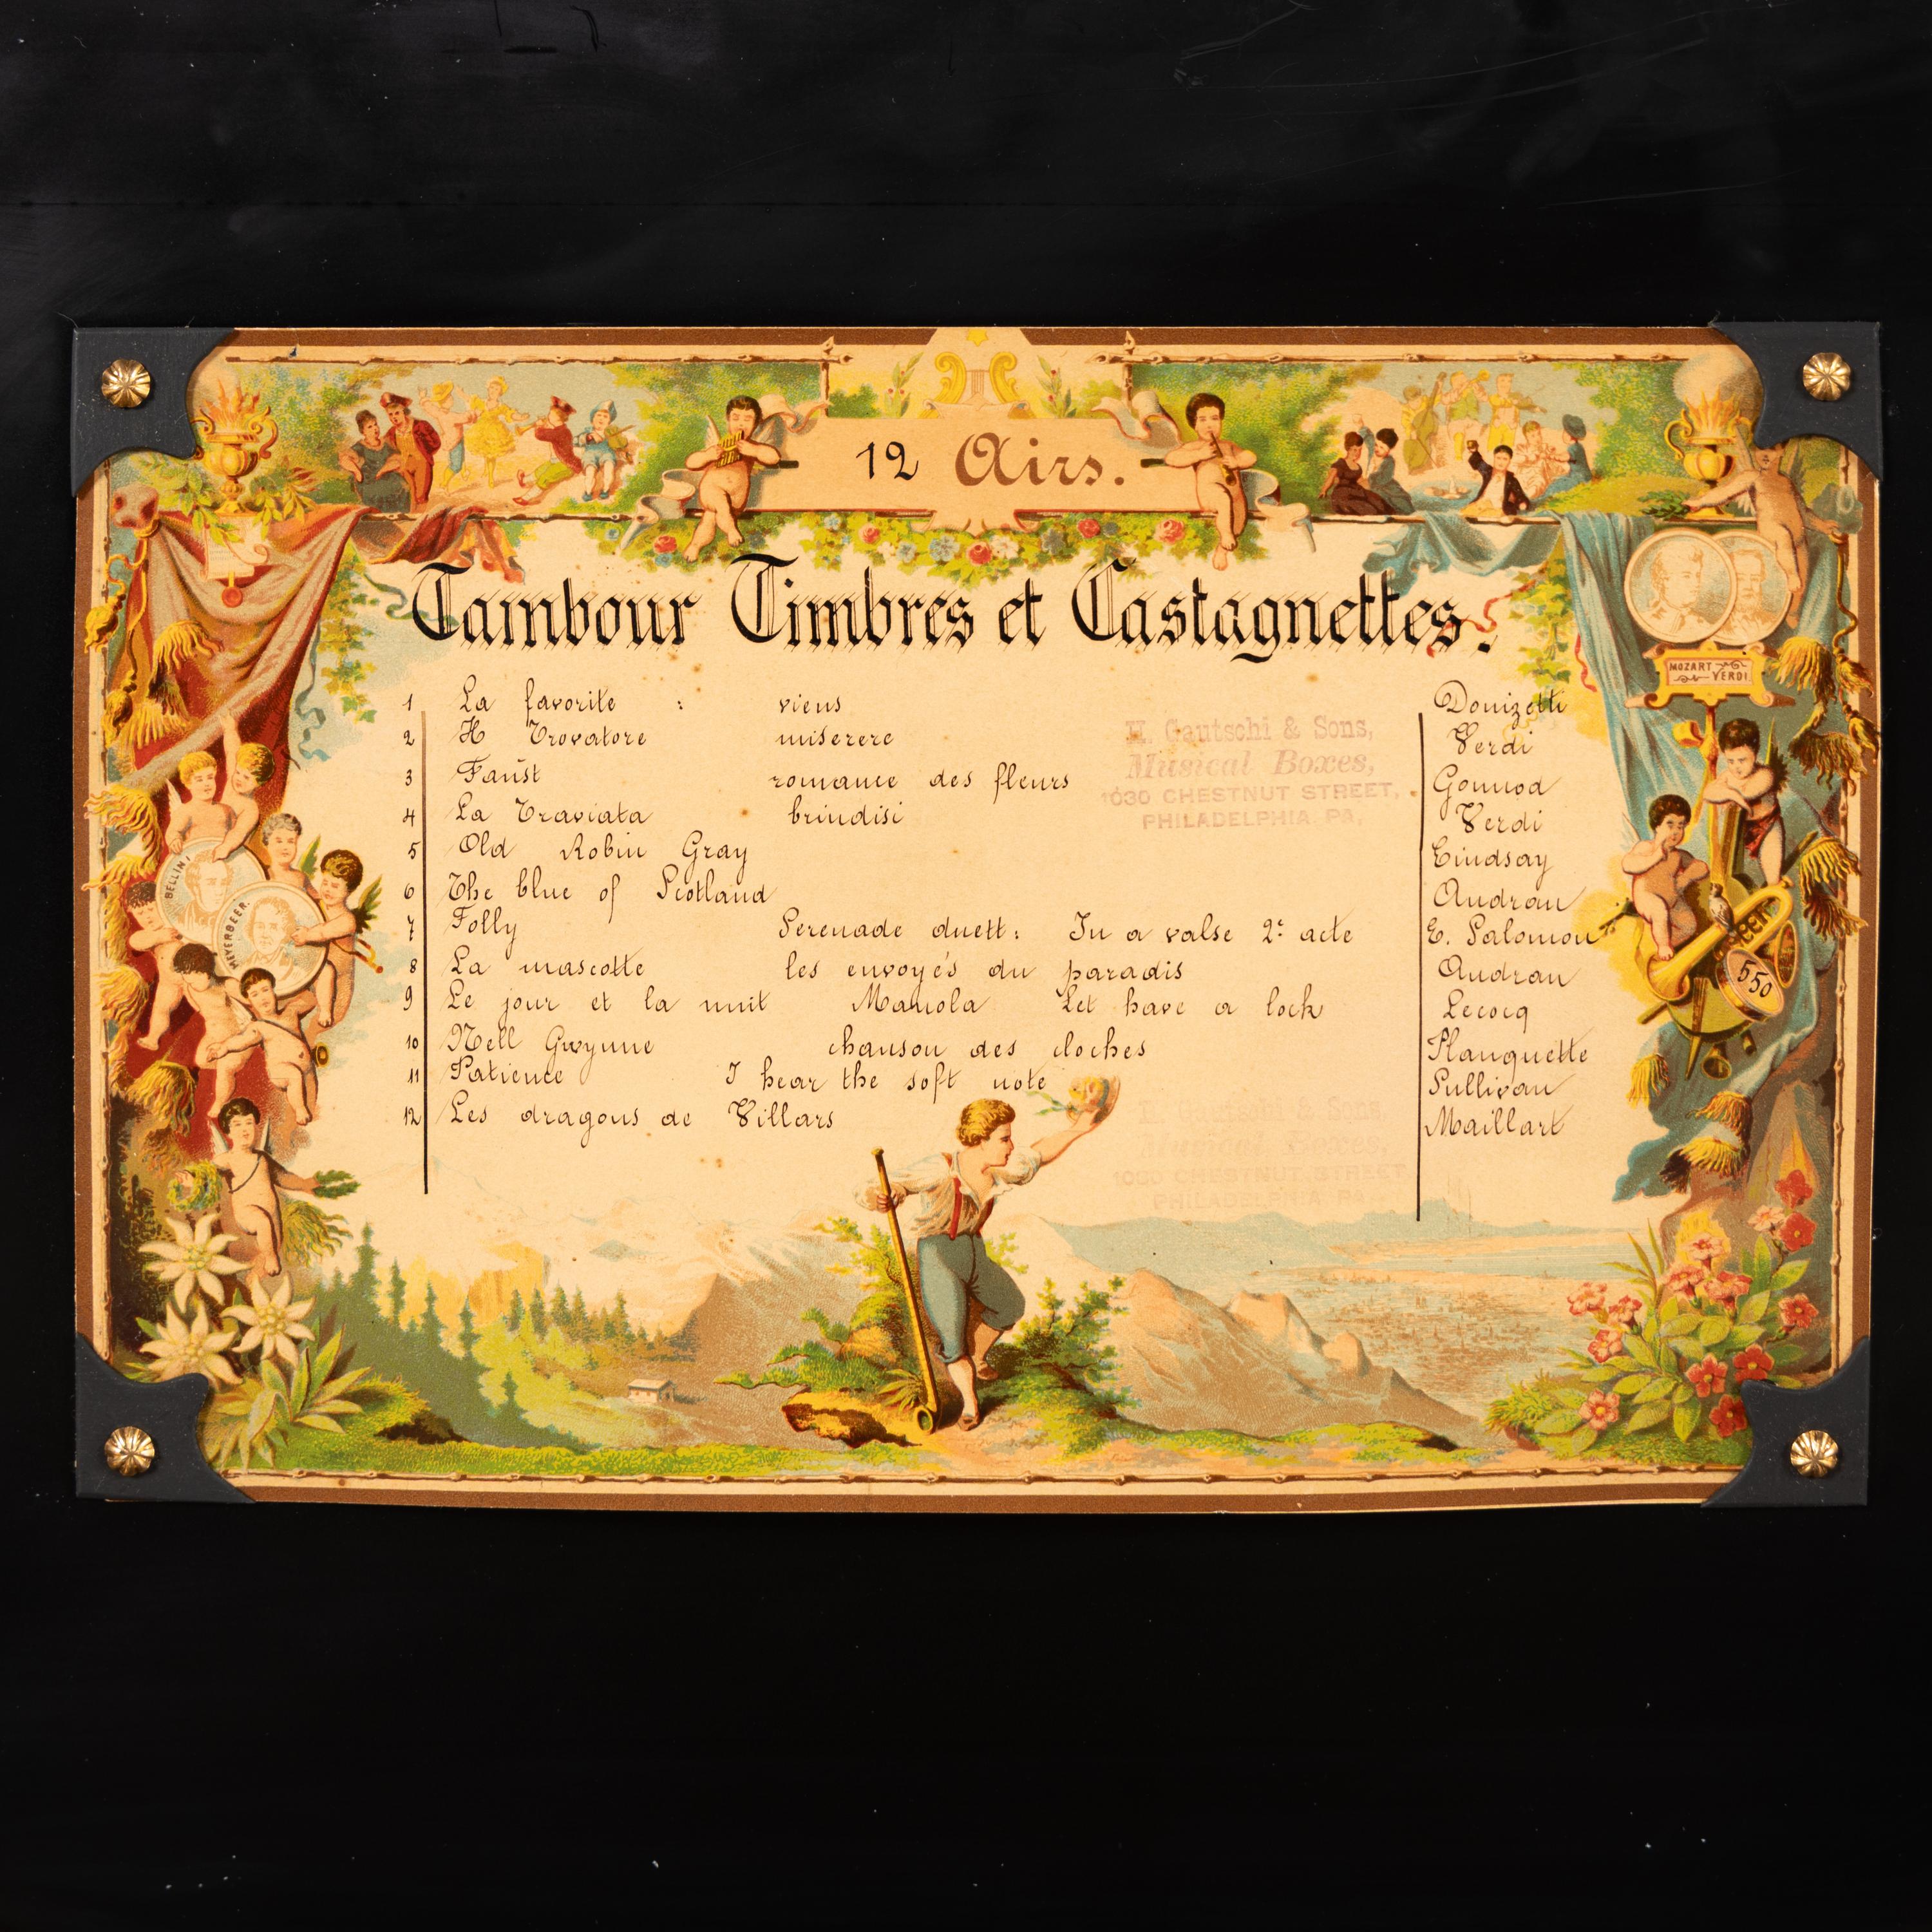 12 Airs.
Tambour Timbres et Castagnettes.
1 La favorite : viens Donizetti
2 Il Trovatore miserere Verdi
3 Faust romance des fleurs Gounod
4 La Traviata brindisi Verdi
5 Old Robin Gray Lindsay
6 The blue of Scotland Audran
7 Folly Serenade duett: In a valse 2e acte E. Salomon
8 La mascotte les envoyés du paradis Audran
9 Le jour et la nuit Manola Let have a lock Lecocq
10 Nell Gwynne chanson des cloches Planquette
11 Patience I hear the soft note Sullivan
12 Les dragons de Villars Maillart
H. Gautschi & Sons,
Musical Boxes,
1030 CHESTNUT STREET,
PHILADELPHIA PA,
& Sons,
Musical Boxes,
1030 CHESTNUT STREET
PHILADELPHIA PA.
BELLINI
MEYERBEER.
MOZART
VERDI.
550